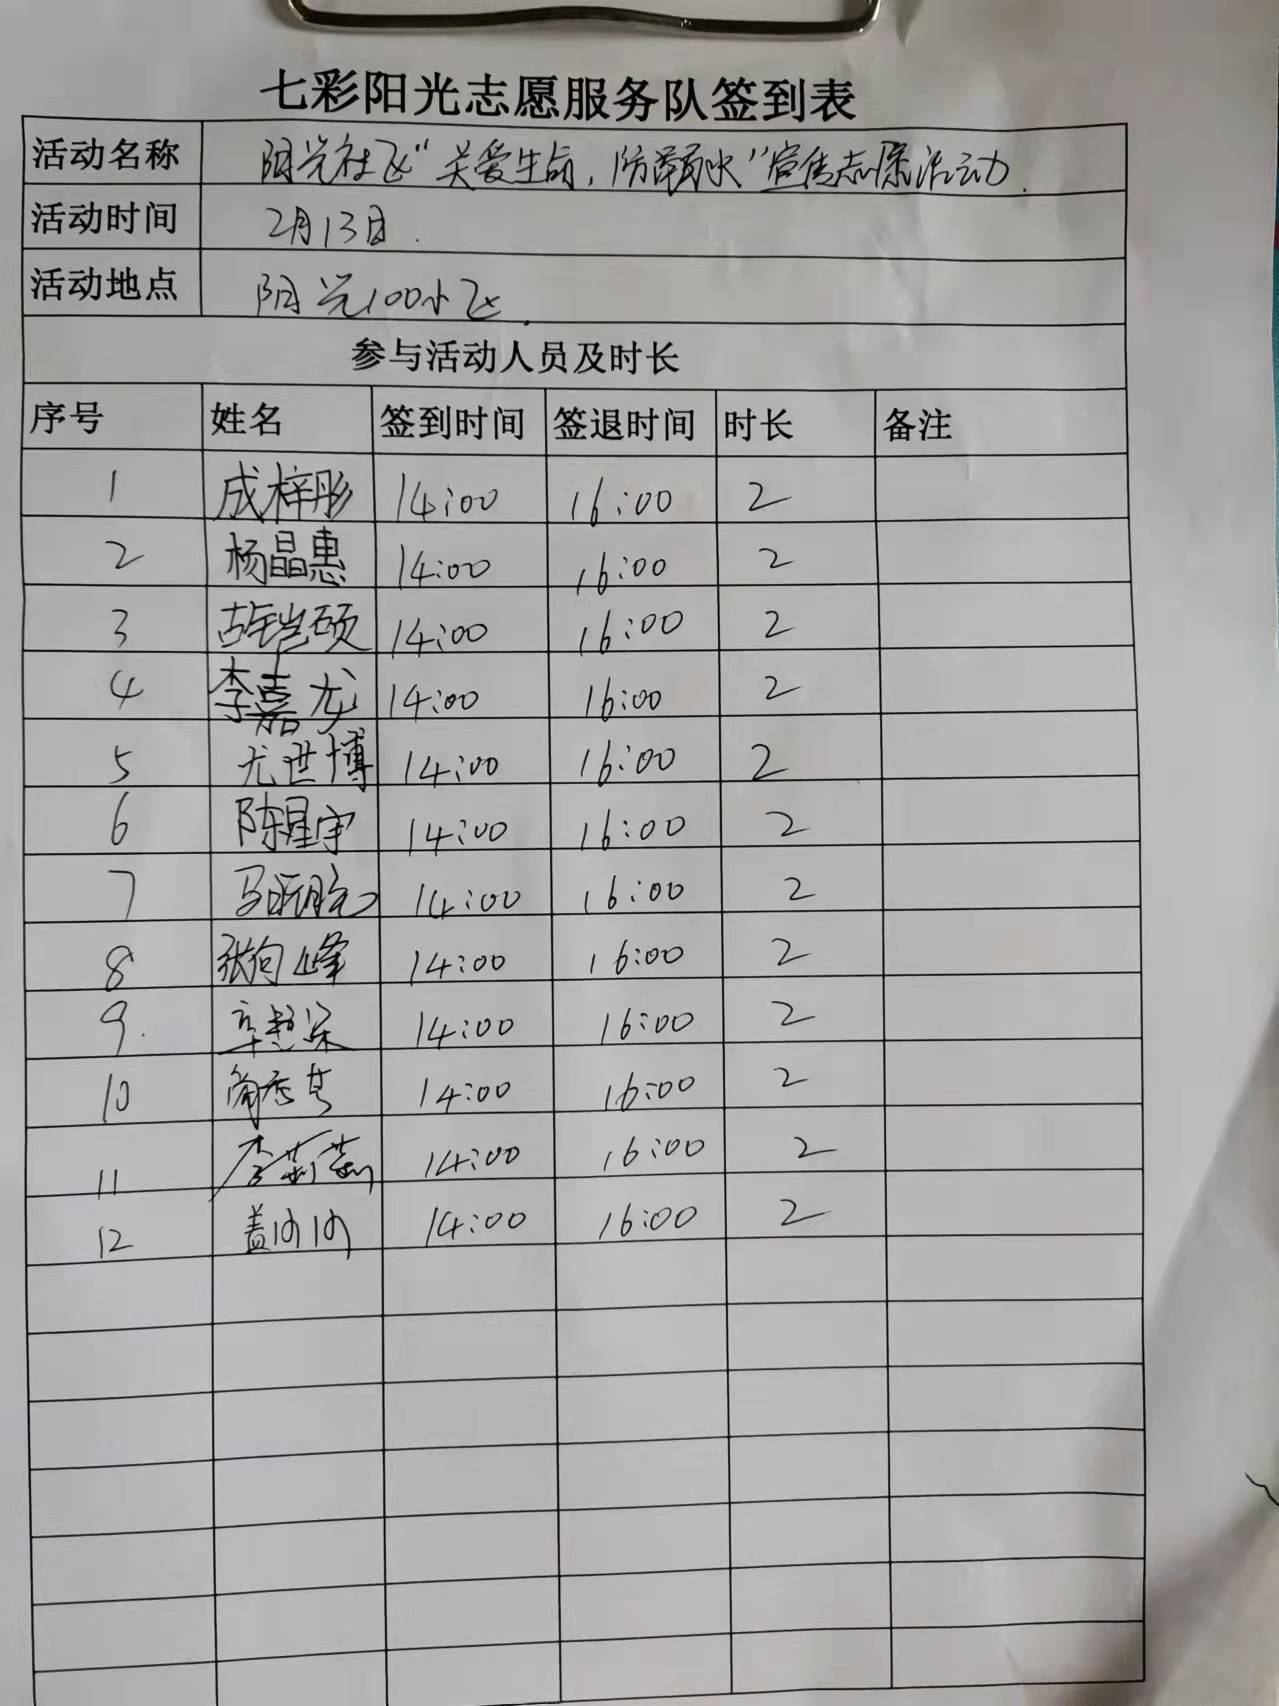 七彩阳光志愿服务队签到表
活动名称 阳光社区“关爱生命，防溺水”宣传志愿活动.
活动时间 2月13日.
活动地点 阳光100小区.
参与活动人员及时长
序号 姓名 签到时间 签退时间 时长 备注
1 成梓彤 14:00 16:00 2
2 杨晶惠 14:00 16:00 2
3 14:00 16:00 2
4 李嘉龙 14:00 16:00 2
5 尤世博 14:00 16:00 2
6 陈星宇 14:00 16:00 2
7 14:00 16:00 2
8 张向峰 14:00 16:00 2
9. 14:00 16:00 2
10 14:00 16:00 2
11 李莉莉 14:00 16:00 2
12 14:00 16:00 2